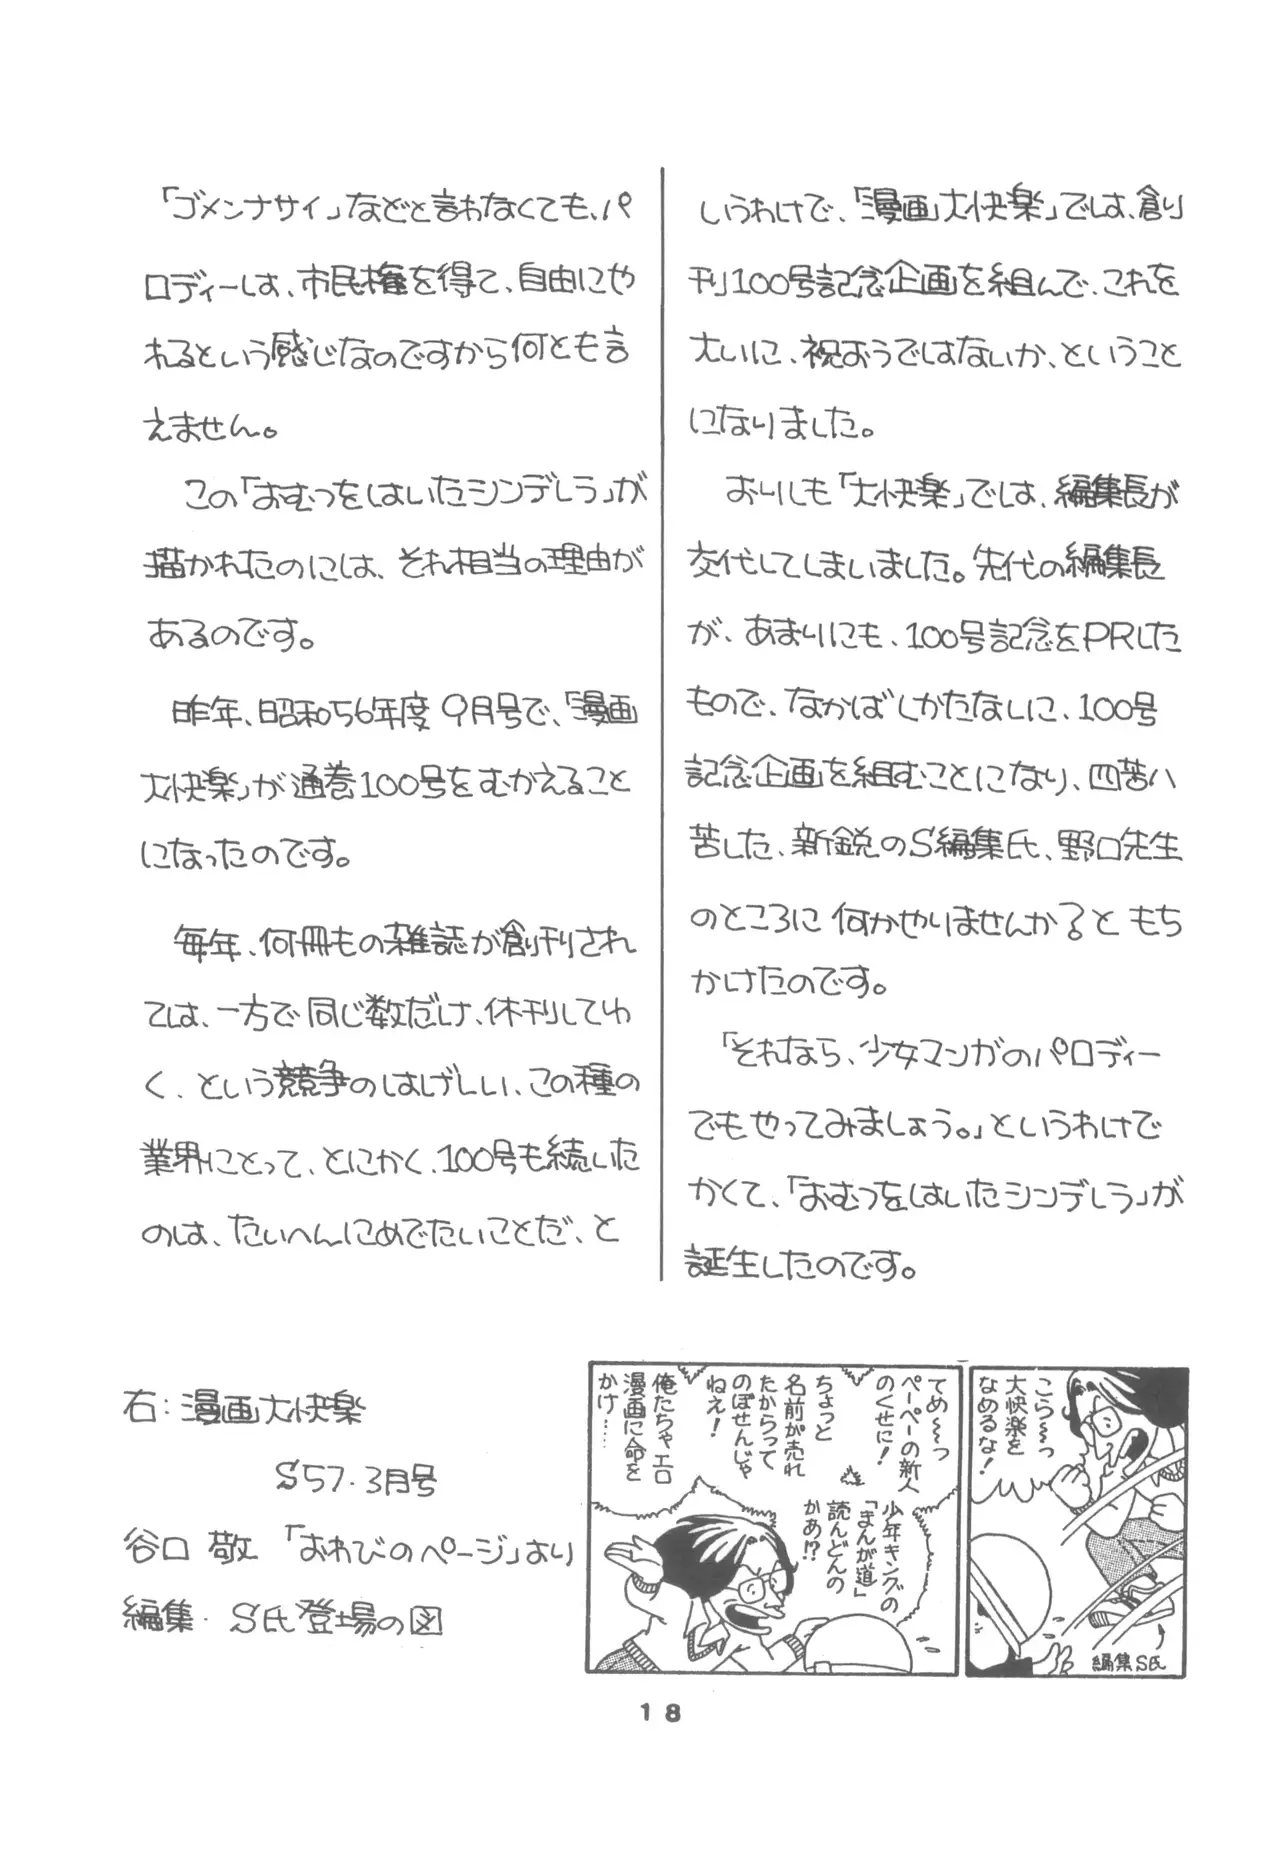 「ゴメンナサイ」などと言わなくても、パ
ロディーしは、市民権を得て、自由にや
れるという感じなのですから何とも言
えません。
この「おむつをはいたシンデレラ」が
描かれたのには、それ相当の理由が
あるのです。
昨年、昭和56年度9月号で、「漫画
大快楽」が通巻100号をむかえること
になったのです。
毎年、何冊もの雑誌が創刊され
ては、一方で同じ数だけ、休刊してゆ
く、という競争のはげしい、この種の
業界にとって、とにかく、100号も続いた
のは、たいへんにめでたいことだ、と
いうわけで、「漫画大快楽」では、創
刊100号記念企画を組んで、これを
大いに、祝おうではないか、ということ
になりました。
おりしも「大快楽」では、編集長が
交代してしまいました。先代の編集長
が、あまりにも、100号記念をPRした
もので、なかばしかたなしに、100号
記念企画を組むことになり、四苦八
苦した、新鋭のS編集氏、野口先生
のところに何かやりませんか?ともち
かけたのです。
「それなら、少女マンガのパロディー
でもやってみましょう。」というわけで
かくて、「おむつをはいたシンデレラ」が
誕生したのです。
右:漫画大快楽
S57・3月号
谷口 敬 「おわびのページ」より
編集・S氏登場の図
こら〜〜っ
大快楽を
なめるな!
編集S氏
てめ〜〜っ
ペーペーの新人
のくせに!
少年キングの
「まんが道」
読んどんの
かあ!?
ちょっと
名前が売れ
たからって
のぼせんじゃ
ねえ!
俺たちゃエロ
漫画に命を
かけ……
18